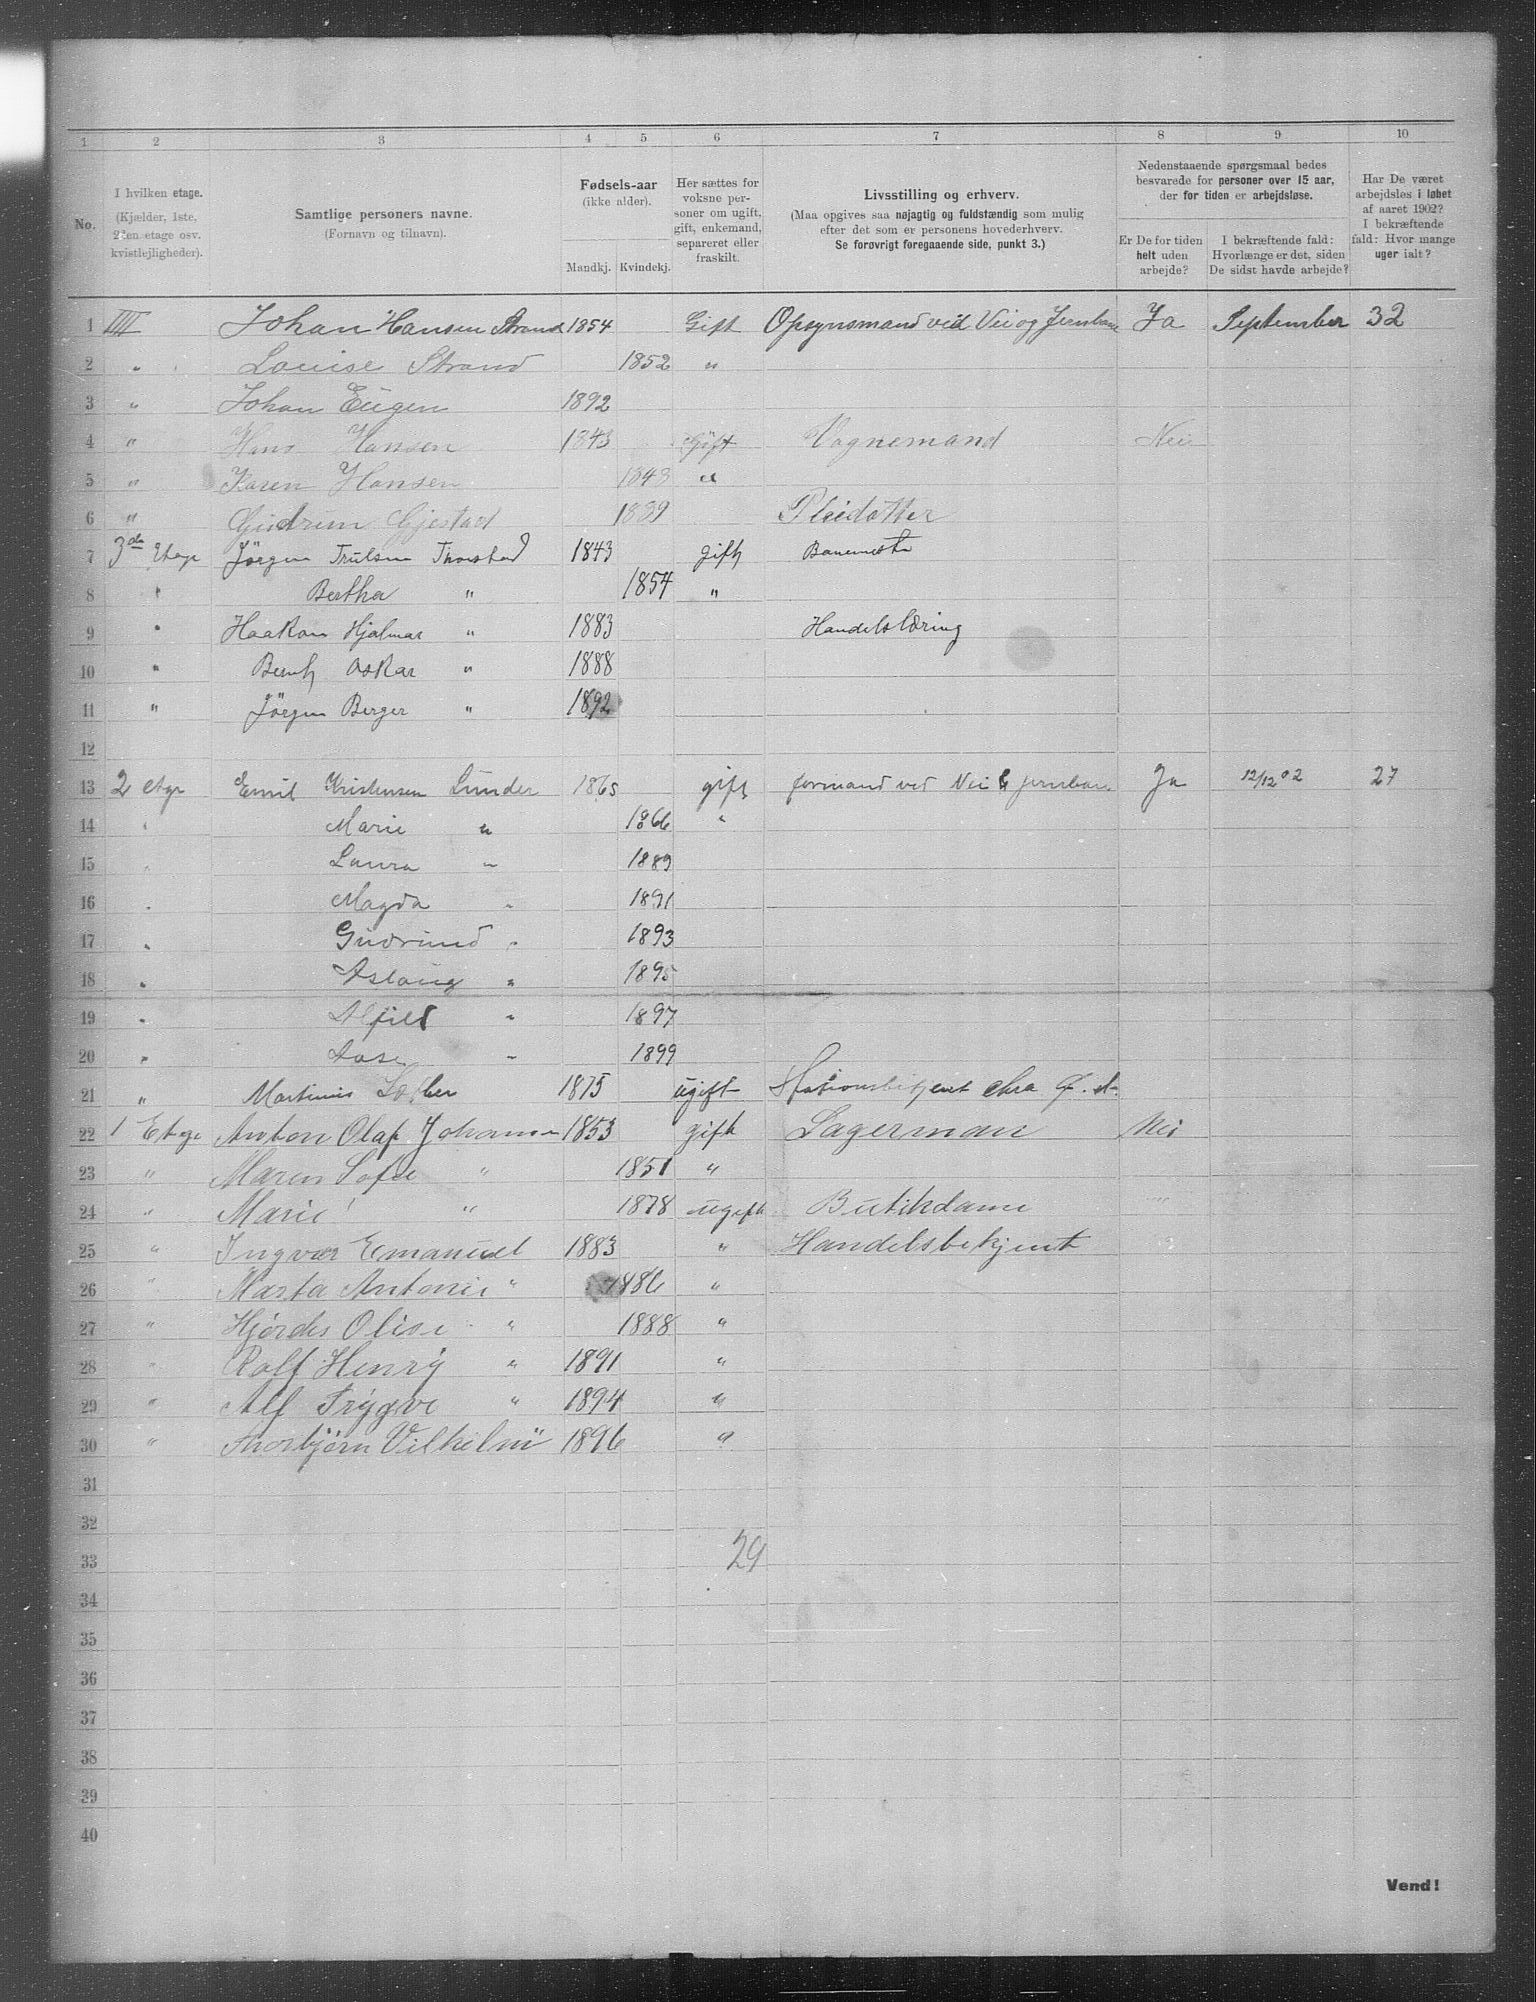 1 2 3 4 5 6 7 8 9 10
No.
I hvilken etage.
(Kjælder, 1ste, 2den etage osv. kvistlejligheder).
Samtlige personers navne.
(Fornavn og tilnavn).
Fødsels-aar
(ikke alder).
Mandkj. Kvindekj.
Her sættes for voksne personer om ugift, gift, enkemand, separeret eller fraskilt.
Livsstilling og erhverv.
(Maa opgives saa nøjagtig og fuldstændig som mulig efter det som er personens hovederhverv.
Se forøvrigt foregaaende side, punkt 3.)
Nedenstaaende spørgsmaal bedes besvarede for personer over 15 aar, der for tiden er arbejdsløse.
Er De for tiden helt uden arbejde?
I bekræftende fald: Hvorlænge er det, siden De sidst havde arbejde?
Har De været arbejdsløs i løbet af aaret 1902? I bekræftende fald: Hvor mange uger ialt?
1 IIII Johan Hansen Strand 1854 Gift Opsynsmand ved Vei og Jernbane Ja September 32
2 " Louise Strand 1852 "
3 " Johan Eugen 1892
4 " Hans Hansen 1843 Gift Vognemand Nei
5 " Karen Hansen 1843 "
6 " Gudrun Gjestad 1889 Pleiedatter
7 3de Etage Jörgen Trulsen Thorstad 1843 gift Banemester
8 " Bertha " 1854 "
9 " Haakon Hjalmar " 1883 Handelslæring
10 " Bernt Oskar " 1888
11 " Jörgen Berger " 1892
12
13 2 etage Emil Kristensen Lunder 1865 gift formand ved Vei & jernbane Ja 12/12 02 27
14 " Marie " 1866 "
15 " Laura " 1889
16 " Magda " 1891
17 " Gudrund " 1893
18 " Aslaug " 1895
19 " Alfild " 1897
20 " Aase " 1899
21 " Martinius 1875 ugift Stationsbetjent Chra Ø. st.
22 1 Etage Anton Olaf Johansen 1853 gift Lagerman Nei
23 " Maren Sofie " 1851 "
24 " Marie " 1878 ugift Butikdame
25 " Ingvar Emanuel 1883 " Handelsbetjent
26 " Marta Antonie " 1886 "
27 " Hjördis Olise " 1888 "
28 " Rolf Henry " 1891 "
29 " Alf Trygve " 1894 "
30 " Thorbjørn Vilhelm 1896 "
31
32
33 29
34
35
36
37
38
39
40
Vend!